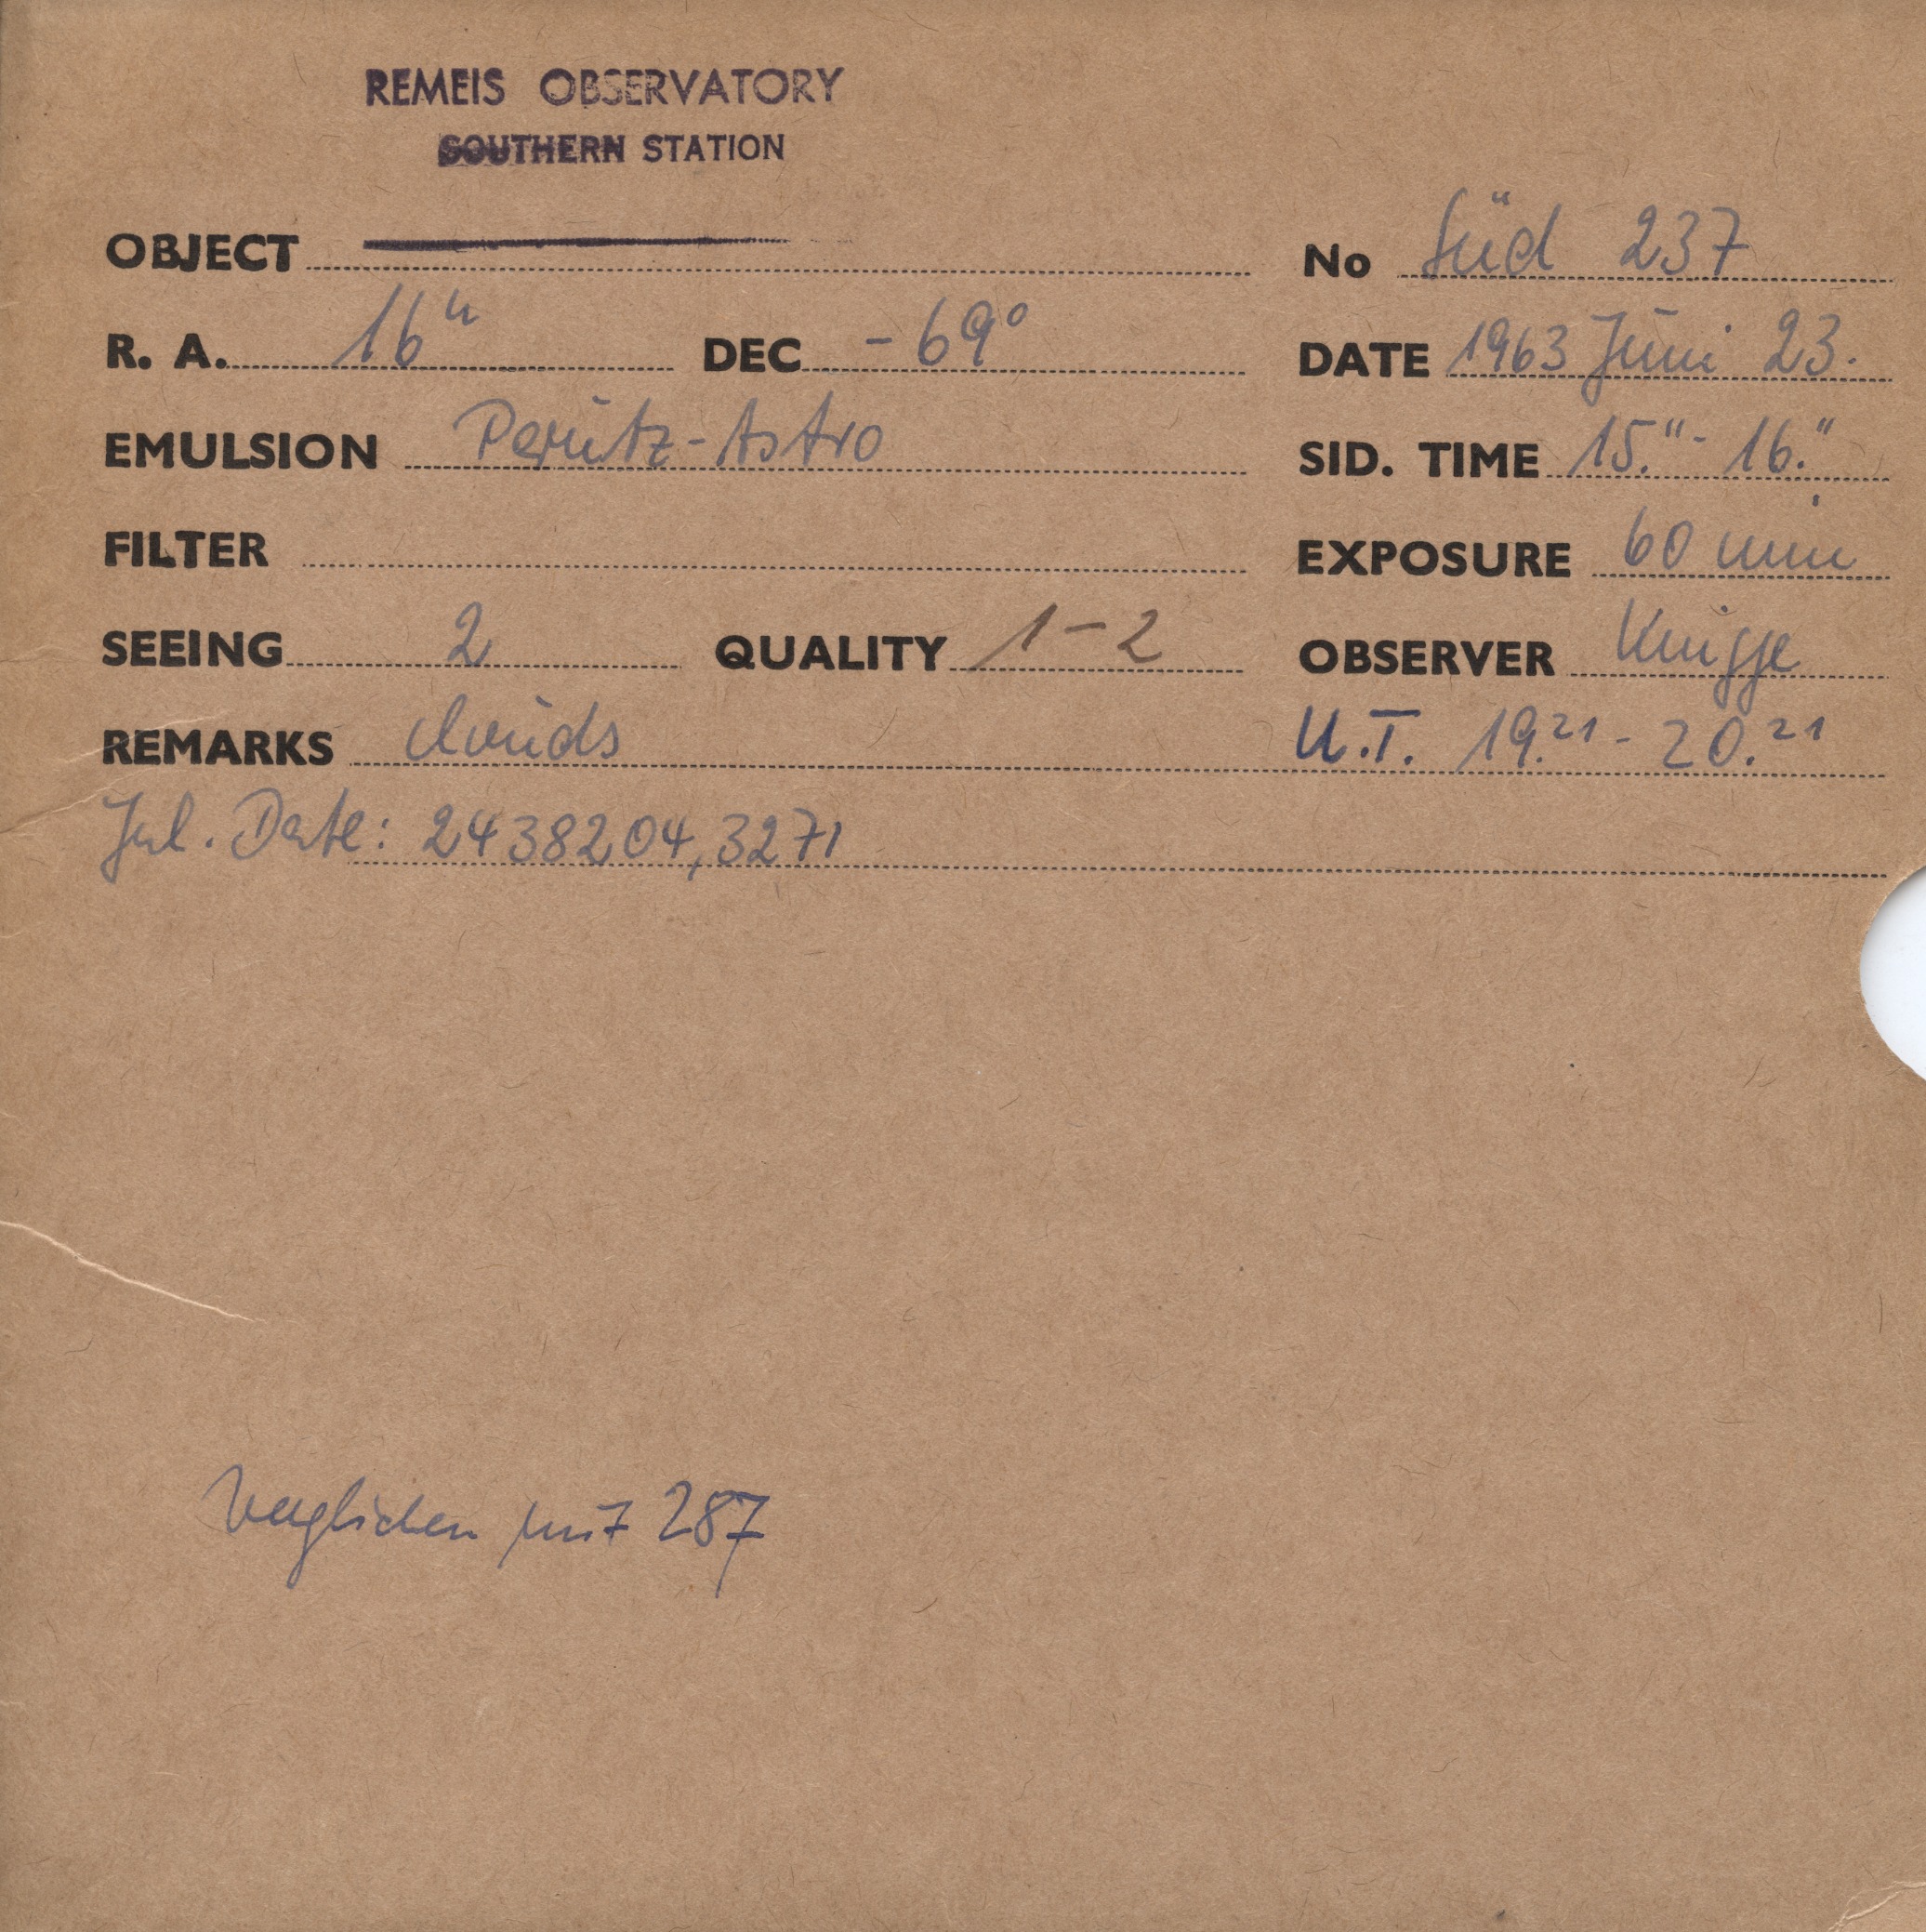 REMEIS OBSERVATORY
SOUTHERN STATION
OBJECT No Süd 237
R. A. 16h DEC -69° DATE 1963 Juni 23.
EMULSION Perutz-Astro SID. TIME 15.h - 16.h
FILTER EXPOSURE 60 min
SEEING 2 QUALITY 1-2 OBSERVER Knigge
REMARKS clouds U.T. 19.21 - 20.21
Jul. Date: 2438204,3271
Verglichen mit 287